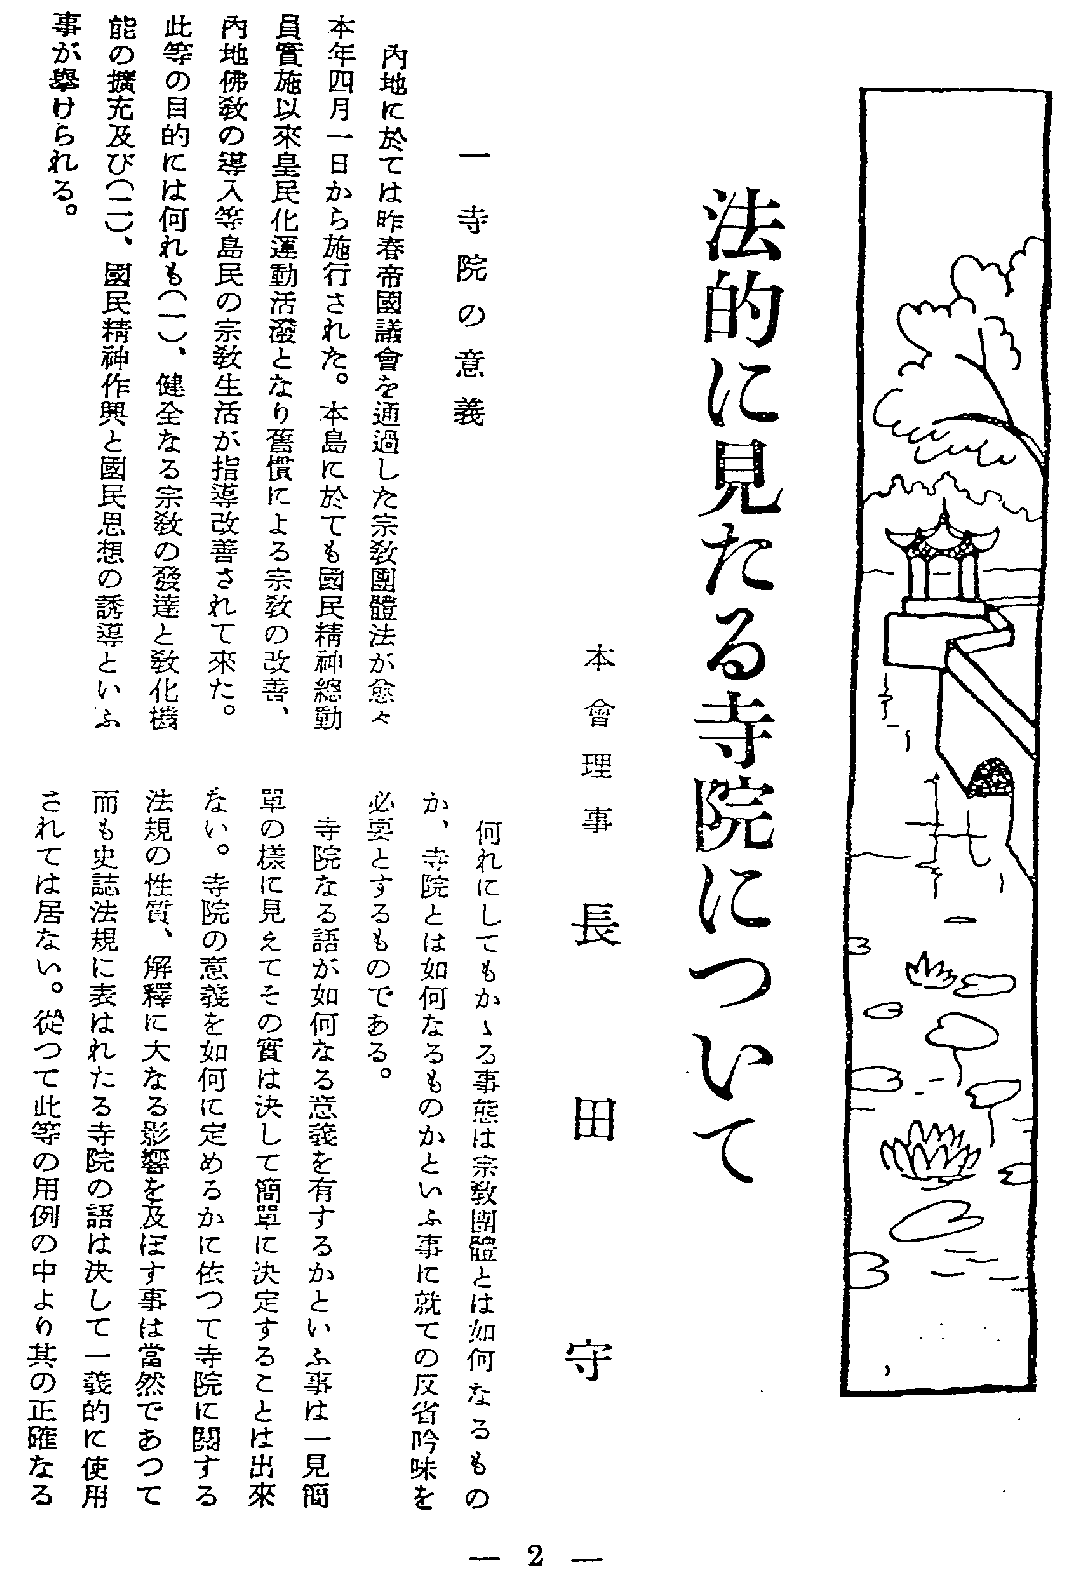 法的に見たる寺院について
本會理事　長田守
一　寺院の意義
内地に於ては昨春帝國議會を通過した宗敎團體法が愈々
本年四月一日から施行された。本島に於ても國民精神總動
員實施以來皇民化運動活潑となり舊慣による宗敎の改善、
内地佛敎の導入等島民の宗敎生活が指導改善されて來た。
此等の目的には何れも(一)、健全なる宗敎の發達と敎化機
能の擴充及び(二)、國民精神作興と國民思想の誘導といふ
事が擧げられる。
何れにしてもかゝる事態は宗敎團體とは如何なるもの
か、寺院とは如何なるものかといふ事に就ての反省吟味を
必要とするものである。
寺院なる語が如何なる意義を有するかといふ事は一見簡
單の樣に見えてその實は決して簡單に決定することは出來
ない。寺院の意義を如何に定めるかに依つて寺院に關する
法規の性質、解釋に大なる影響を及ぼす事は當然であつて
而も史誌法規に表はれたる寺院の語は決して一義的に使用
されては居ない。從つて此等の用例の中より其の正確なる
— 2 —